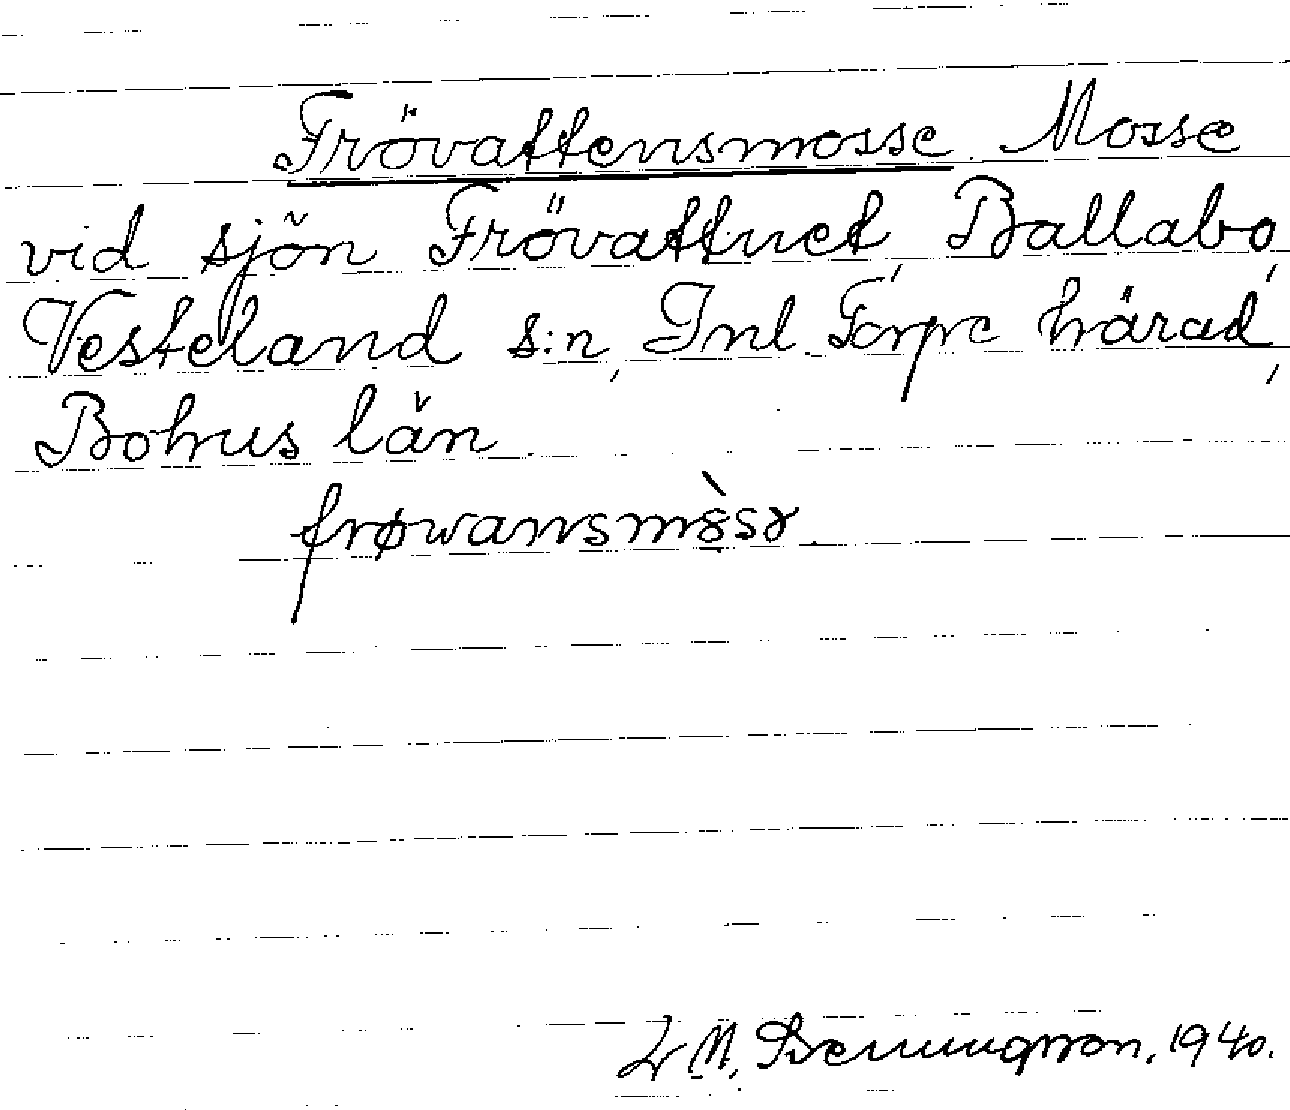 Frövattensmosse. Mosse
vid sjön Frövattnet, Ballabo,
Vesteland s:n, Inl. Torpe härad,
Bohus län.
frøwansmòsə.
1940.